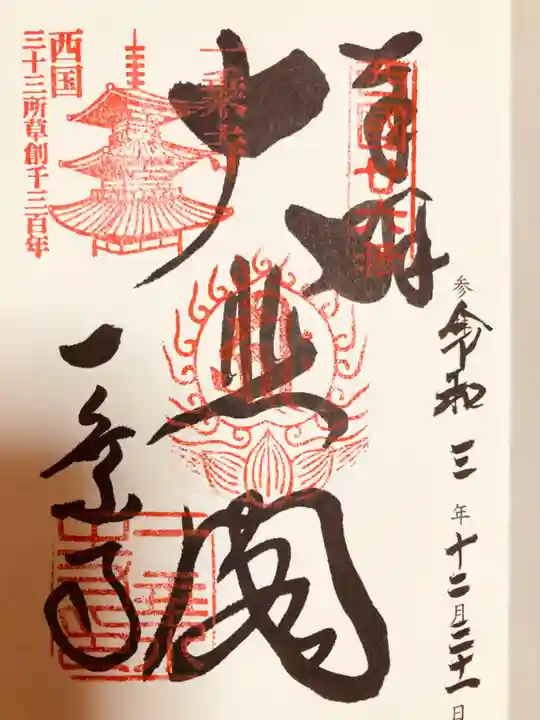 奉拝
西国廿六番
参 令和三年十二月二十一日
大悲閣
一乗寺
一乗寺
西国
三十三所草創千三百年